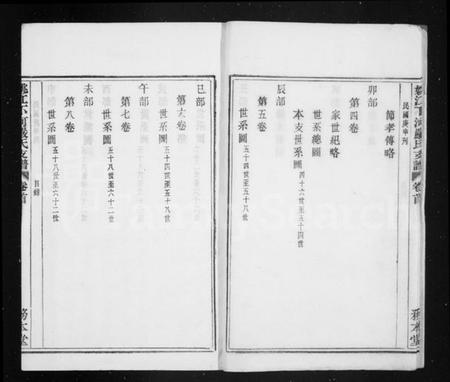 姚江下河嚴氏支譜 卷首
民國庚申刊
務本堂
節孝傳略
卯部
第四卷
家世紀略
世系總圖
本支世系圖 四十六世至五十四世
辰部
第五卷
世系圖 五十四世至五十八世
巳部
第六卷
世系圖 五十四世至五十八世
午部
第七卷
世系圖 五十八世至六十二世
未部
第八卷
世系圖 五十八世至六十二世
目錄
姚江下河嚴氏支譜 卷首
務本堂